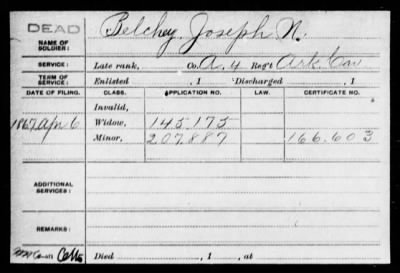 DEAD
NAME OF SOLDIER: Belchey, Joseph N.
SERVICE: Late rank, Co. A, 4 Reg't Ark. Cav
TERM OF SERVICE: Enlisted , 1 Discharged , 1
DATE OF FILING. CLASS. APPLICATION NO. LAW. CERTIFICATE NO.
Invalid,
1867 Apr 6 Widow, 145.175
Minor, 207.887 166.603
ADDITIONAL SERVICES:
REMARKS:
Died , 1 , at